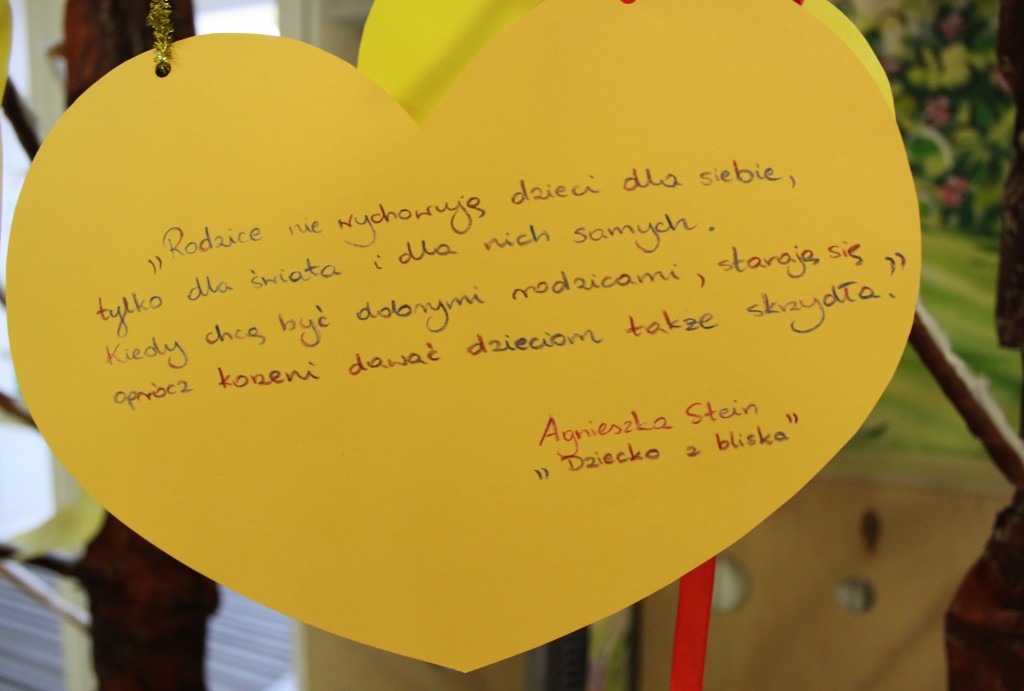 „Rodzice nie wychowują dzieci dla siebie,
tylko dla świata i dla nich samych.
Kiedy chcą być dobrymi rodzicami, starają się
oprócz korzeni dawać dzieciom także skrzydła.”
Agnieszka Stein
„Dziecko z bliska”